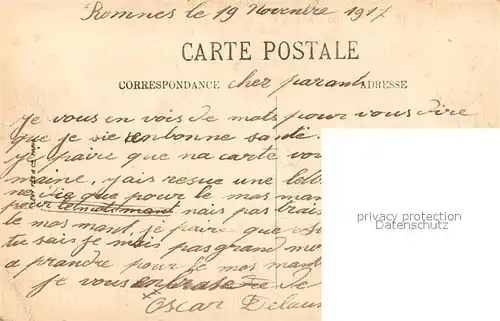 Romnes le 19 Novenbre 1917
CARTE POSTALE
CORRESPONDANCE cher parant ADRESSE
je vous en vois de mots pour vous dire
que je sie enbonne santé.
je paire que na carte vou
maine, jais resue une let
que pour le mos man
pour le mos mant nais pas
le mos mant. je paire que
tu sais je mais pas grand mo
a prandre pour le mos mant
je vous enbrase de
Oscar Delau
privacy protection
Datenschutz